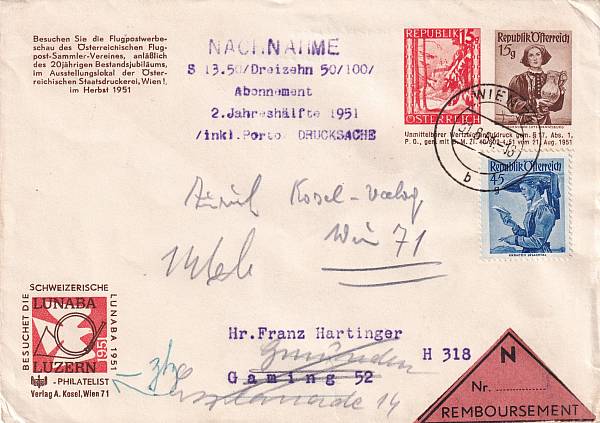 Besuchen Sie die Flugpostwerbe-
schau des Österreichischen Flug-
post-Sammler-Vereines, anläßlich
des 20jährigen Bestandsjubiläums,
im Ausstellungslokal der Öster-
reichischen Staatsdruckerei, Wien I,
im Herbst 1951
NACHNAHME
S 13.50/Dreizehn 50/100/
Abonnement
2.Jahreshälfte 1951
/inkl.Porto DRUCKSACHE
REPUBLIK
15g
ÖSTERREICH
Republik Österreich
15g
Unmittelbarer Wertzeichenaufdruck gem. § 17, Abs. 1,
P. O., gen. mit B. M. Zl. vom 21. Aug. 1951
WIEN
b
Republik Österreich
45
g
Zurück Kosel-Verlag
Wien 71
SCHWEIZERISCHE
BESUCHET DIE
LUNABA
LUZERN
1951
LUNABA 1951
-PHILATELIST
Verlag A. Kosel, Wien 71
Hr.Franz Hartinger
Gmunden
H 318
Gaming 52
Esplanade 14
N
Nr.
REMBOURSEMENT